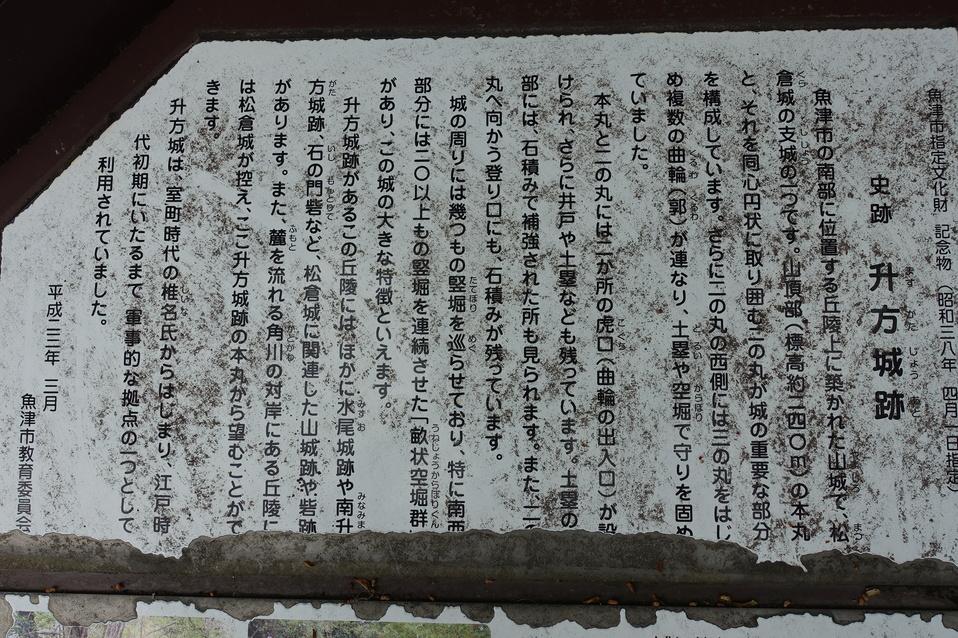 魚津市指定文化財 記念物 (昭和三八年 四月一日指定)
史跡 升方城跡
魚津市の南部に位置する丘陵上に築かれた山城で、松
倉城の支城の一つです。山頂部(標高約二四〇m)の本丸
と、それを同心円状に取り囲む二の丸が城の重要な部分
を構成しています。さらに二の丸の西側には三の丸をはじ
め複数の曲輪(郭)が連なり、土塁や空堀で守りを固め
ていました。
本丸と二の丸には二か所の虎口(曲輪の出入口)が設
けられ、さらに井戸や土塁なども残っています。土塁の
部には、石積みで補強された所も見られます。また、二
丸へ向かう登り口にも、石積みが残っています。
城の周りには幾つもの竪堀を巡らせており、特に南西
部分には二〇以上もの竪堀を連続させた「畝状空堀群
があり、この城の大きな特徴といえます。
升方城跡があるこの丘陵にはほかに水尾城跡や南升
方城跡、石の門砦など、松倉城に関連した山城跡や砦跡
があります。また、麓を流れる角川の対岸にある丘陵に
は松倉城が控え、ここ升方城跡の本丸から望むことがで
きます。
升方城は、室町時代の椎名氏からはじまり、江戸時
代初期にいたるまで軍事的な拠点の一つとして
利用されていました。
平成二三年 三月
魚津市教育委員会